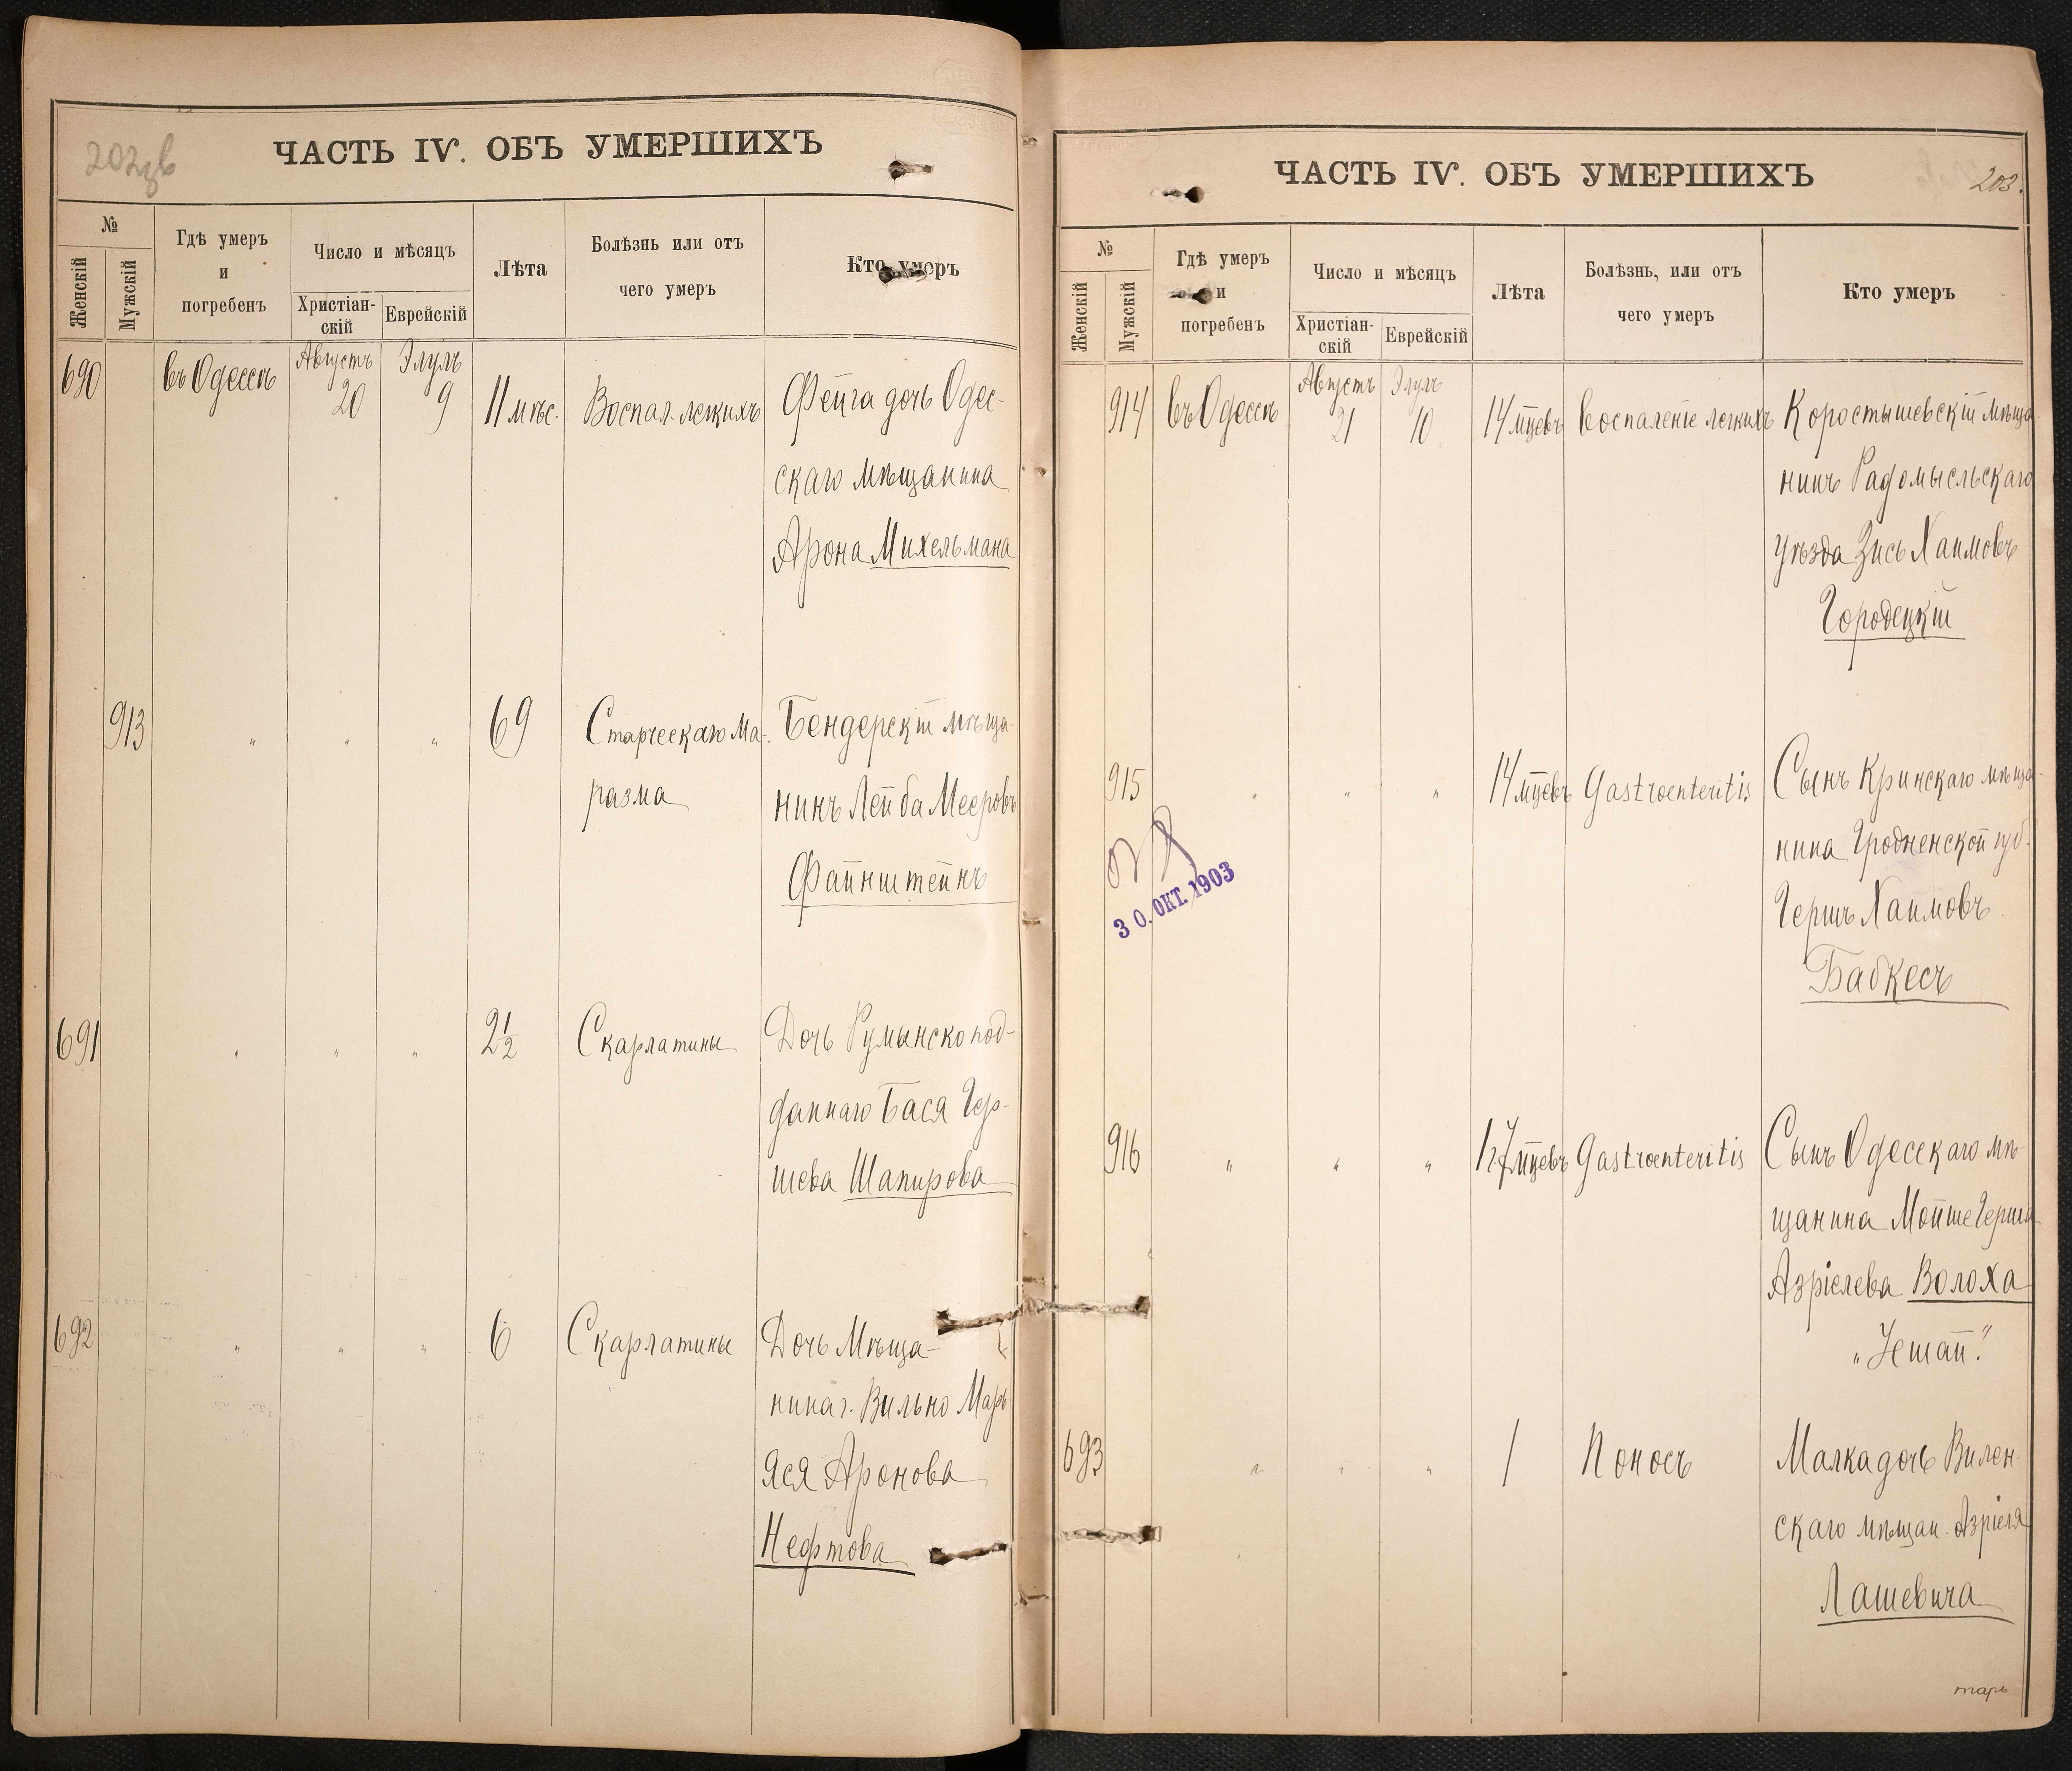 202 об
ЧАСТЬ IV. ОБЪ УМЕРШИХЪ
№
Женскій
Мужскій
Гдѣ умеръ
и
погребенъ
Число и мѣсяцъ
Христіан-
скій
Еврейскій
Лѣта
Болѣзнь или отъ
чего умеръ
Кто умеръ
690
въ Одессѣ
Августъ
20
Элулъ
9
11 мѣс.
Воспал. легкихъ
Фейга дочь Одес-
скаго мѣщанина
Арона Михельмана
913
"
"
"
69
Старческаго Ма-
разма
Бендерскій мѣща-
нинъ Лейба Мееровъ
Файнштейнъ
691
"
"
"
2½
Скарлатины
Дочь Румынско под-
даннаго Бася Гер-
шева Шапирова
692
"
"
"
6
Скарлатины
Дочь Мѣща-
нина г. Вильно Марь-
яся Аронова
Нефтова
203.
ЧАСТЬ IV. ОБЪ УМЕРШИХЪ
№
Женскій
Мужскій
Гдѣ умеръ
и
погребенъ
Число и мѣсяцъ
Христіан-
скій
Еврейскій
Лѣта
Болѣзнь, или отъ
чего умеръ
Кто умеръ
914
въ Одессѣ
Августъ
21
Элулъ
10
14 мцевъ
Воспаленіе легкихъ
Коростышевскій мѣща-
нинъ Радомысльскаго
уѣзда Зись Хаимовъ
Городецкій
915
"
"
"
14 мцевъ
Gastroenteritis
Сынъ Кринскаго мѣща-
нина Гродненской губ.
Гершъ Хаимовъ
Бабкесъ
30. ОКТ. 1903
916
"
"
"
мцевъ
Gastroenteritis
Сынъ Одесскаго мѣ-
щанина Мойше Герша
Азріелева Волоха
693
"
"
"
1
Поносъ
Малка дочь Вилен-
скаго мѣщан. Азріеля
Лашевича
тарь